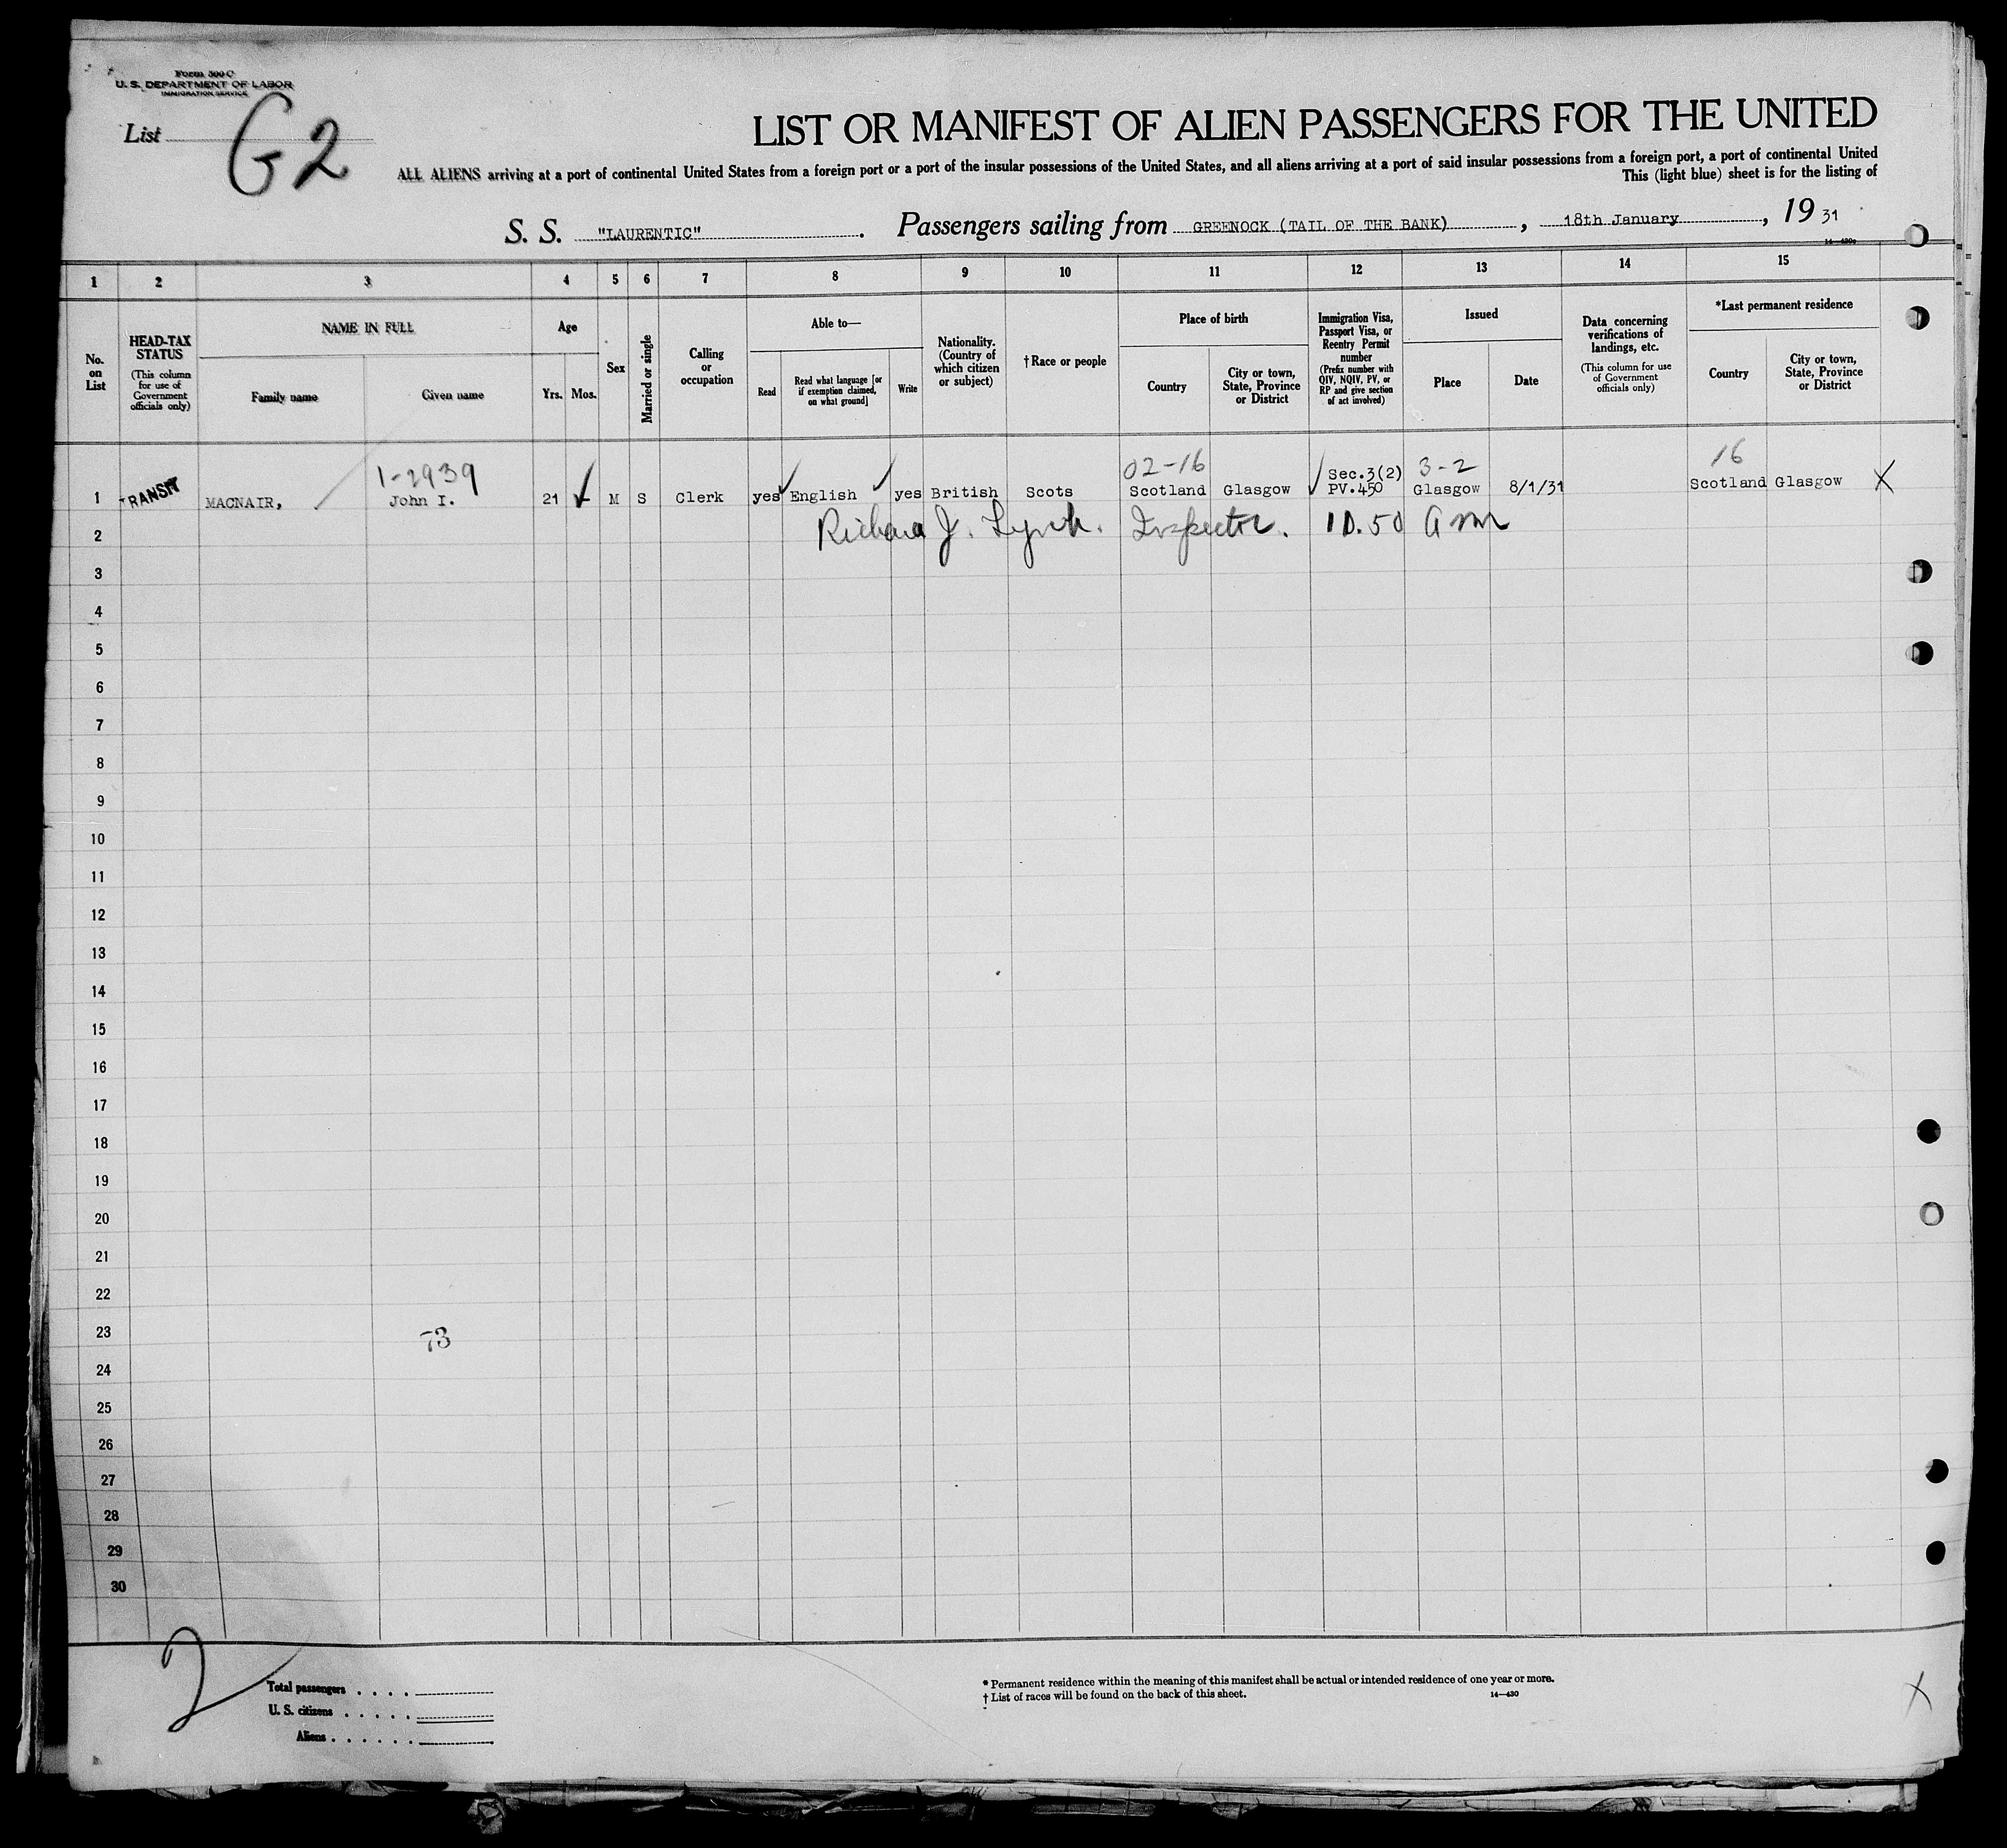 Form 500 C
U. S. DEPARTMENT OF LABOR
IMMIGRATION SERVICE
List G2
LIST OR MANIFEST OF ALIEN PASSENGERS FOR THE UNITED
ALL ALIENS arriving at a port of continental United States from a foreign port or a port of the insular possessions of the United States, and all aliens arriving at a port of said insular possessions from a foreign port, a port of continental United
This (light blue) sheet is for the listing of
S. S. "LAURENTIC". Passengers sailing from GREENOCK (TAIL OF THE BANK), 18th January, 19 31
1 2 3 4 5 6 7 8 9 10 11 12 13 14 15
No. on List
HEAD-TAX STATUS
(This column for use of Government officials only)
NAME IN FULL
Family name
Given name
Age
Yrs. Mos.
Sex
Married or single
Calling or occupation
Able to—
Read
Read what language [or if exemption claimed, on what ground]
Write
Nationality. (Country of which citizen or subject)
†Race or people
Place of birth
Country
City or town, State, Province or District
Immigration Visa, Passport Visa, or Reentry Permit number
(Prefix number with QIV, NQIV, PV, or RP and give section of act involved)
Issued
Place
Date
Data concerning verifications of landings, etc.
(This column for use of Government officials only)
*Last permanent residence
Country
City or town, State, Province or District
1-2939 02-16 Sec.3(2) 3-2 16
1 TRANSIT MACNAIR, John I. 21 M S Clerk yes English yes British Scots Scotland Glasgow PV.450 Glasgow 8/1/31 Scotland Glasgow X
2 Richard J. Lynch. Inspector. 10.50 am
3
4
5
6
7
8
9
10
11
12
13
14
15
16
17
18
19
20
21
22
23 73
24
25
26
27
28
29
30
2
Total passengers . . . .
U. S. citizens . . . . .
Aliens . . . . . .
* Permanent residence within the meaning of this manifest shall be actual or intended residence of one year or more.
† List of races will be found on the back of this sheet. 14—430
X